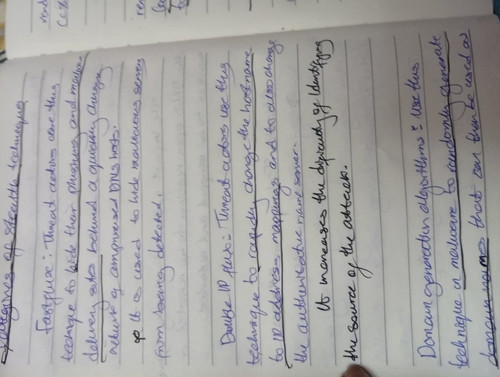 of stealth techniques
Fastflux : Threat actors use this
technique to hide their phishing and malware
delivery sites behind a quickly changing
network of compromised DNS hosts.
It is used to hide malicious servers
from being detected.
Double IP flux : Threat actors use this
technique to rapidly change the hostname
to IP address mappings and to also change
the authoritative name server.
It increases the difficulty of identifying
the source of the attacks.
Domain generation algorithms : Use this
technique in malware to randomly generate
domain names that can then be used as